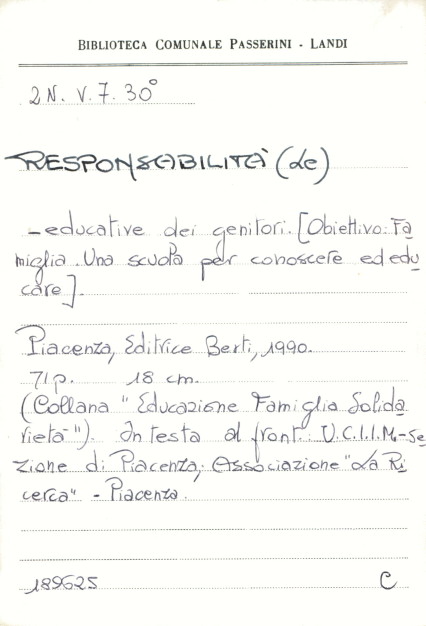 BIBLIOTECA COMUNALE PASSERINI - LANDI
2 N. V. 7. 30°
RESPONSABILITÀ (Le)
- educative dei genitori. [Obiettivo: Fa
miglia. Una scuola per conoscere ed edu
care].
Piacenza, Editrice Berti, 1990.
71 p. 18 cm.
(Collana "Educazione Famiglia Solida
rietà"). In testa al front. U.C.I.I.M.-Se
zione di Piacenza; Associazione "La Ri
cerca" - Piacenza.
189625 C